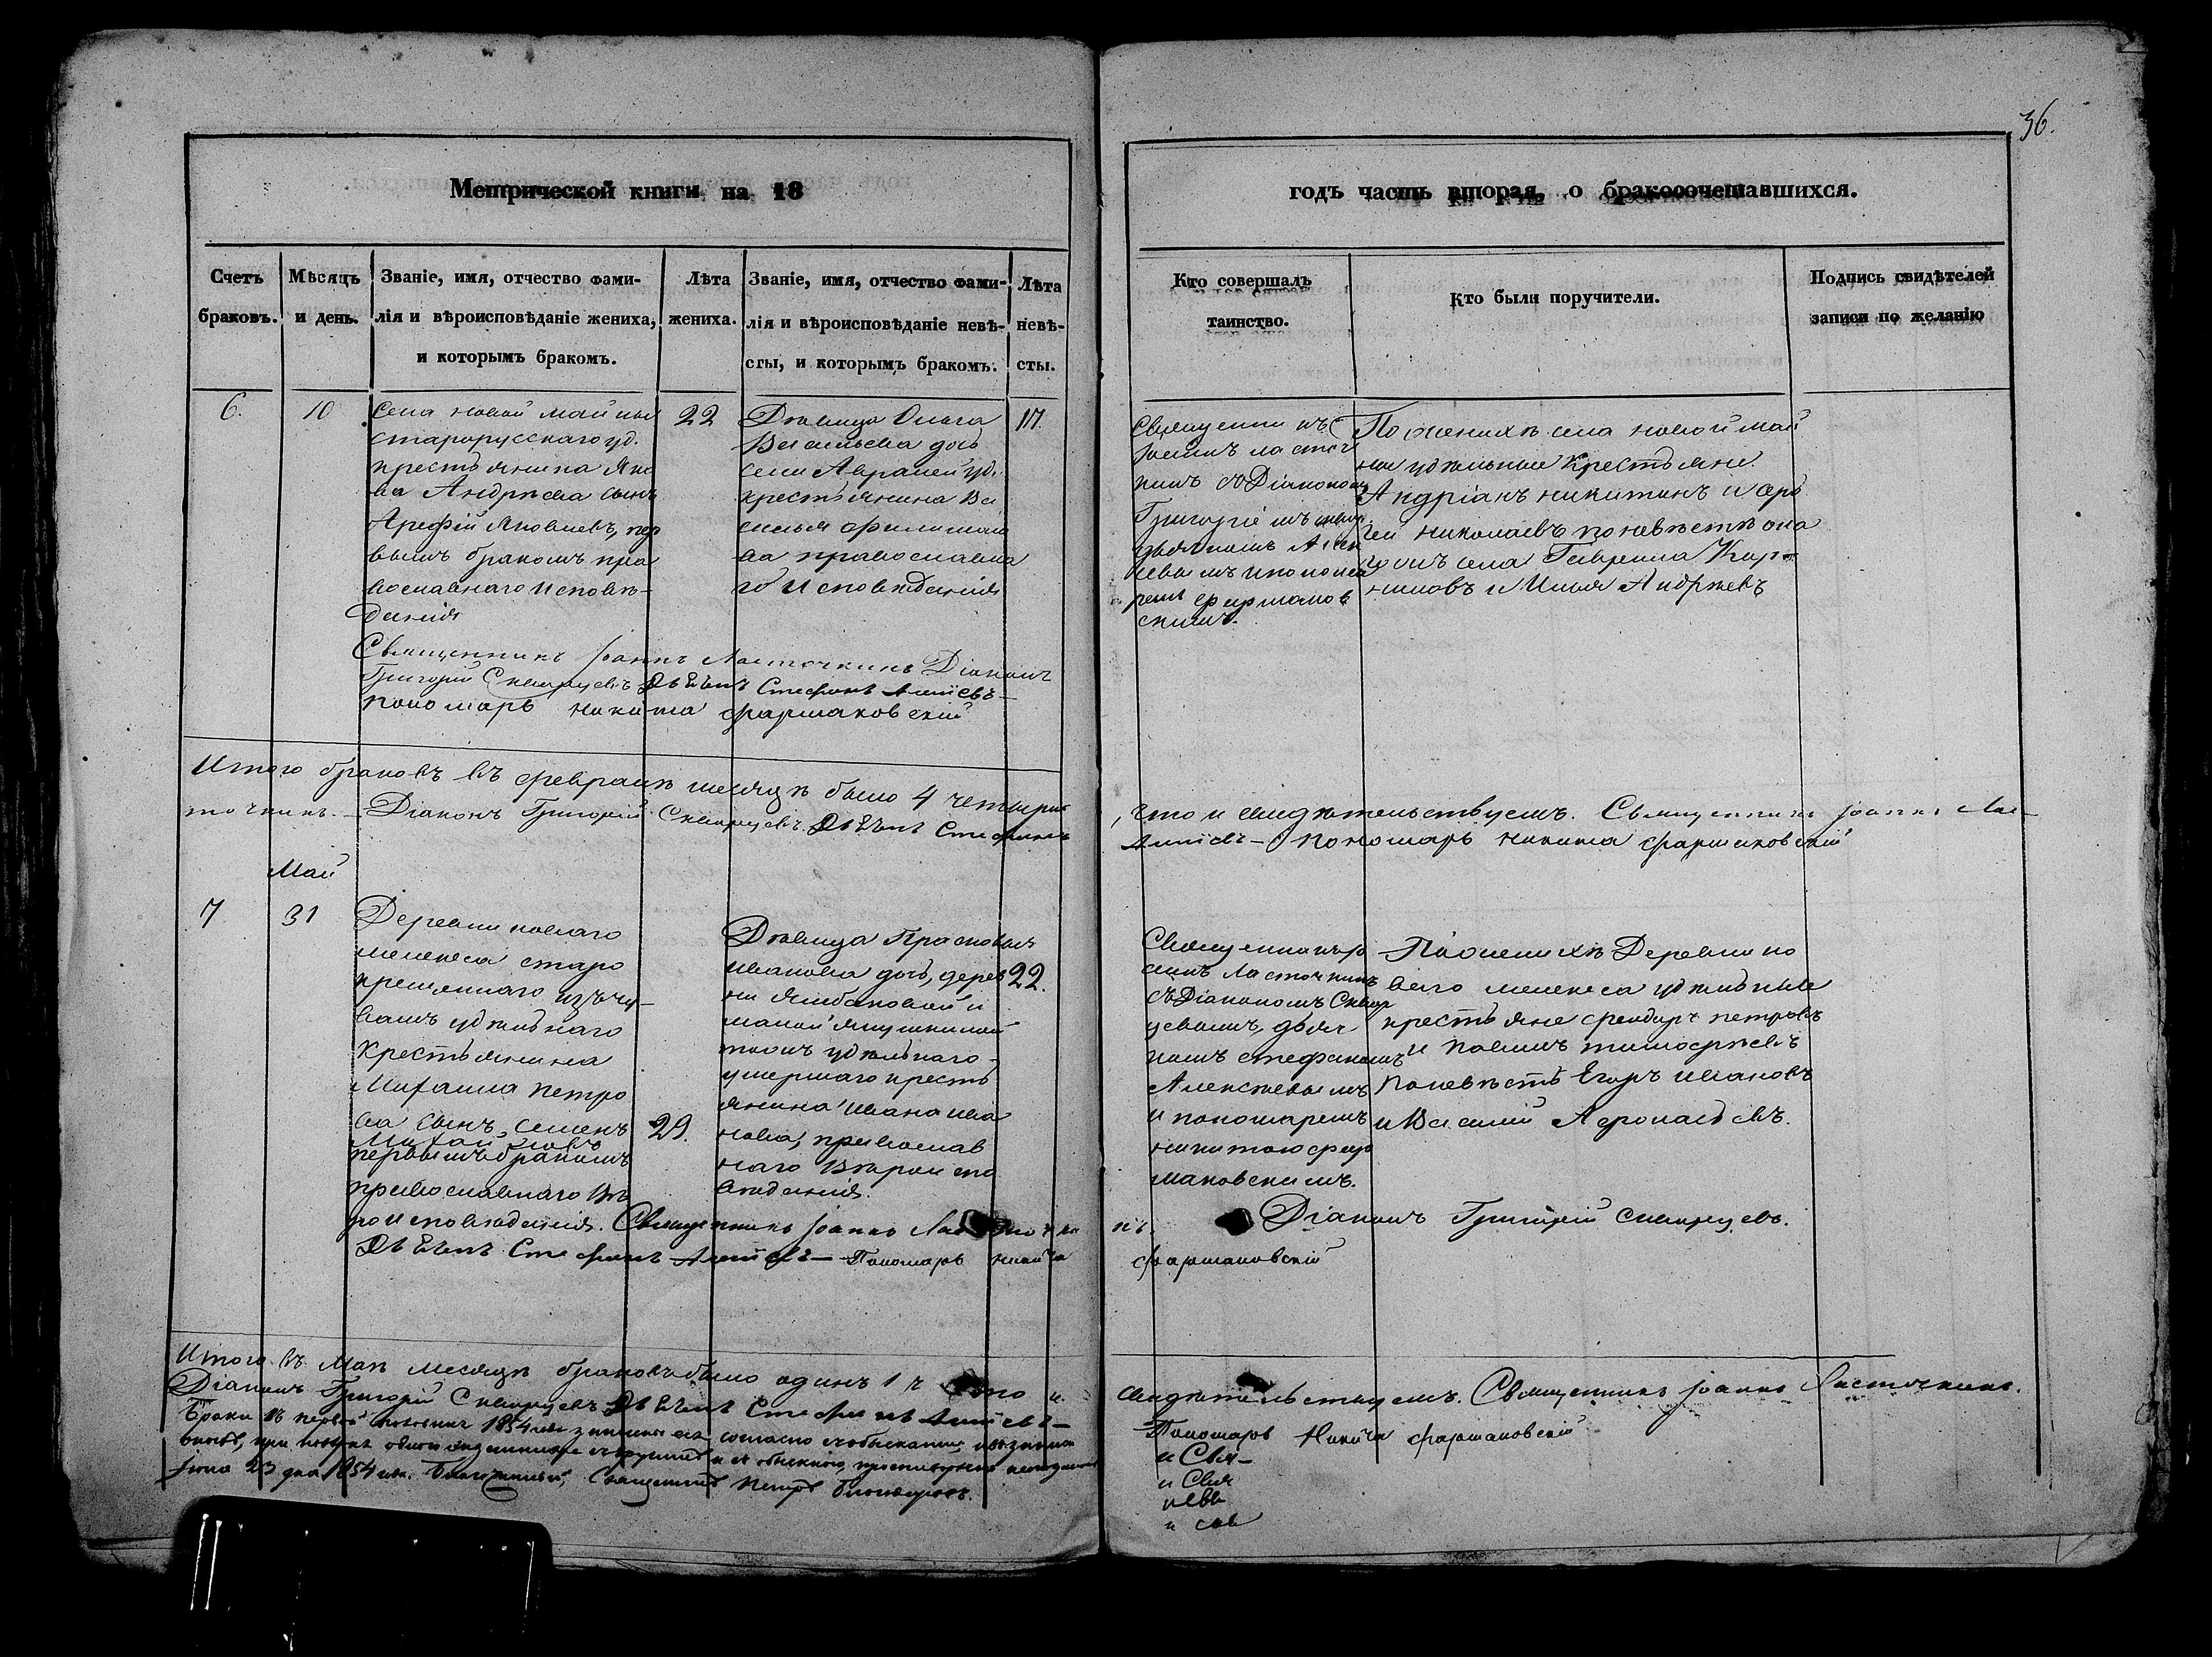 36.
Метрической книги на 18
годъ часть вторая, о бракосочетавшихся.
Счетъ браковъ.
Мѣсяцъ и день.
Званіе, имя, отчество фами-
лія и вѣроисповѣданіе жениха,
и которымъ бракомъ.
Лѣта
жениха.
Званіе, имя, отчество фами-
лія и вѣроисповѣданіе невѣ-
сты, и которымъ бракомъ.
Лѣта
невѣ-
сты.
Кто совершалъ
таинство.
Кто были поручители.
Подпись свидѣтелей
записи по желанію
6.
10
села новой майны
старорусскаго уд.
крестьянина Яко
ва Андрѣева сынъ
Арефій Яковлевъ, пер
вымъ бракомъ пра
вославнаго исповѣ-
данія
22
Дѣвица Ольга
Васильева дочь
села Авралей уд.
крестьянина Ва
силья Филимоно
ва православна
го исповѣданія
17.
Священникъ
Іоаннъ Ласточ
кинъ съ Діакономъ
Григоріемъ
дьячкомъ Алек
и понома
ремъ Фармаков
скимъ.
По женихѣ села новой май
ны удѣльные крестьяне
Андріанъ никитинъ и Сер
гей николаевъ по невѣстѣ она
го жъ села Гаврила
и Илья Андрѣевъ
Священникъ Іоаннъ Ласточкинъ Діаконъ
Григорій Скворцевъ Дьячекъ Стефанъ Алтіевъ
пономарь никита фармаковскій
Итого браковъ въ февралѣ месяцѣ было 4 четыри
, что и свидѣтельствуемъ. Священникъ Іоаннъ Лас-
точкинъ. — Діаконъ Григорій Скворцевъ. Дьячекъ Стефанъ
Алтіевъ — Пономарь никита фармаковскій
Май
7
31
Деревни новаго
мелекеса старо
крещеннаго изъ чу-
вашъ удѣльнаго
крестьянина
Михаила петро
ва сынъ, семенъ
Михайловъ
первымъ бракомъ
православнаго вѣ
роисповѣданія.
29.
Дѣвица Прасковья
иванова дочь, дерев
ни Якмбаковой и
малой якушкиной
тожъ удѣльнаго
умершаго кресть
янина ивана ива
нова, православ
наго вѣроиспо
вѣданія.
22.
Священникъ Іо
аннъ Ласточкинъ
съ Діакономъ Сквор
цевымъ, дьяч
комъ стефаномъ
Алексѣевымъ
и пономаремъ
никитою фар
маковскимъ.
По женихѣ Деревни но
ваго мелекеса удѣльные
крестьяне феодоръ петровъ
и Павелъ тимофѣевъ
По невѣстѣ Егоръ ивановъ
и Василій Афонасьевъ.
Священникъ Іоаннъ Ласточки
нъ. Діаконъ Григорій Скворцевъ.
Дьячекъ Стефанъ Алтіевъ — Пономарь никита
фармаковскій
Итого въ Маѣ месяцѣ браковъ было одинъ 1 что и
свидѣтельствуемъ. Священникъ Іоаннъ Ласточкинъ.
Діаконъ Григорій Скворцевъ Дьячекъ Стефанъ Алтіевъ —
Пономарь Никита фармаковскій
Браки въ первой половинѣ 1854 года записаны согласно съ обысками
Іюня 23 дня 1854 года. Благочинный, Священникъ Петръ
и Свя-
и Свя
и Свя
и свя